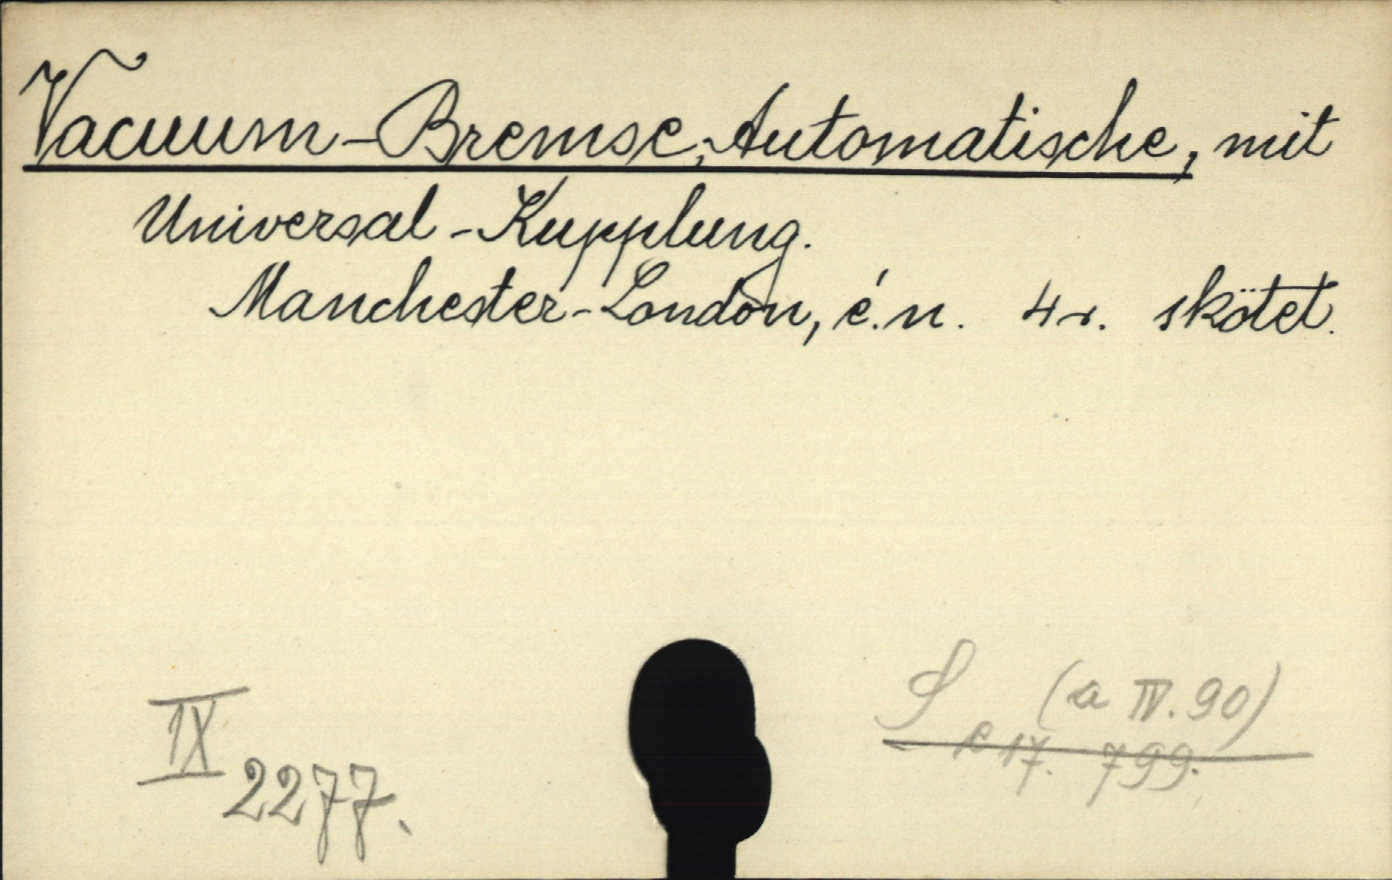 Vacuum-Bremse, Automatische, mit
Universal-Kupplung.
Manchester-London, é.n. 4r. skötet.
IX 2277.
S (a IV. 90)
c 17. 799.